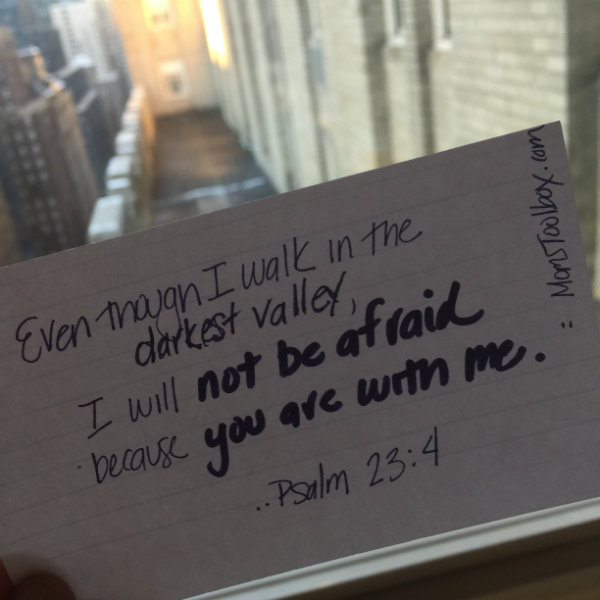 Even though I walk in the
darkest valley,
I will not be afraid
because you are with me.
..Psalm 23:4
MomsToolbox.com